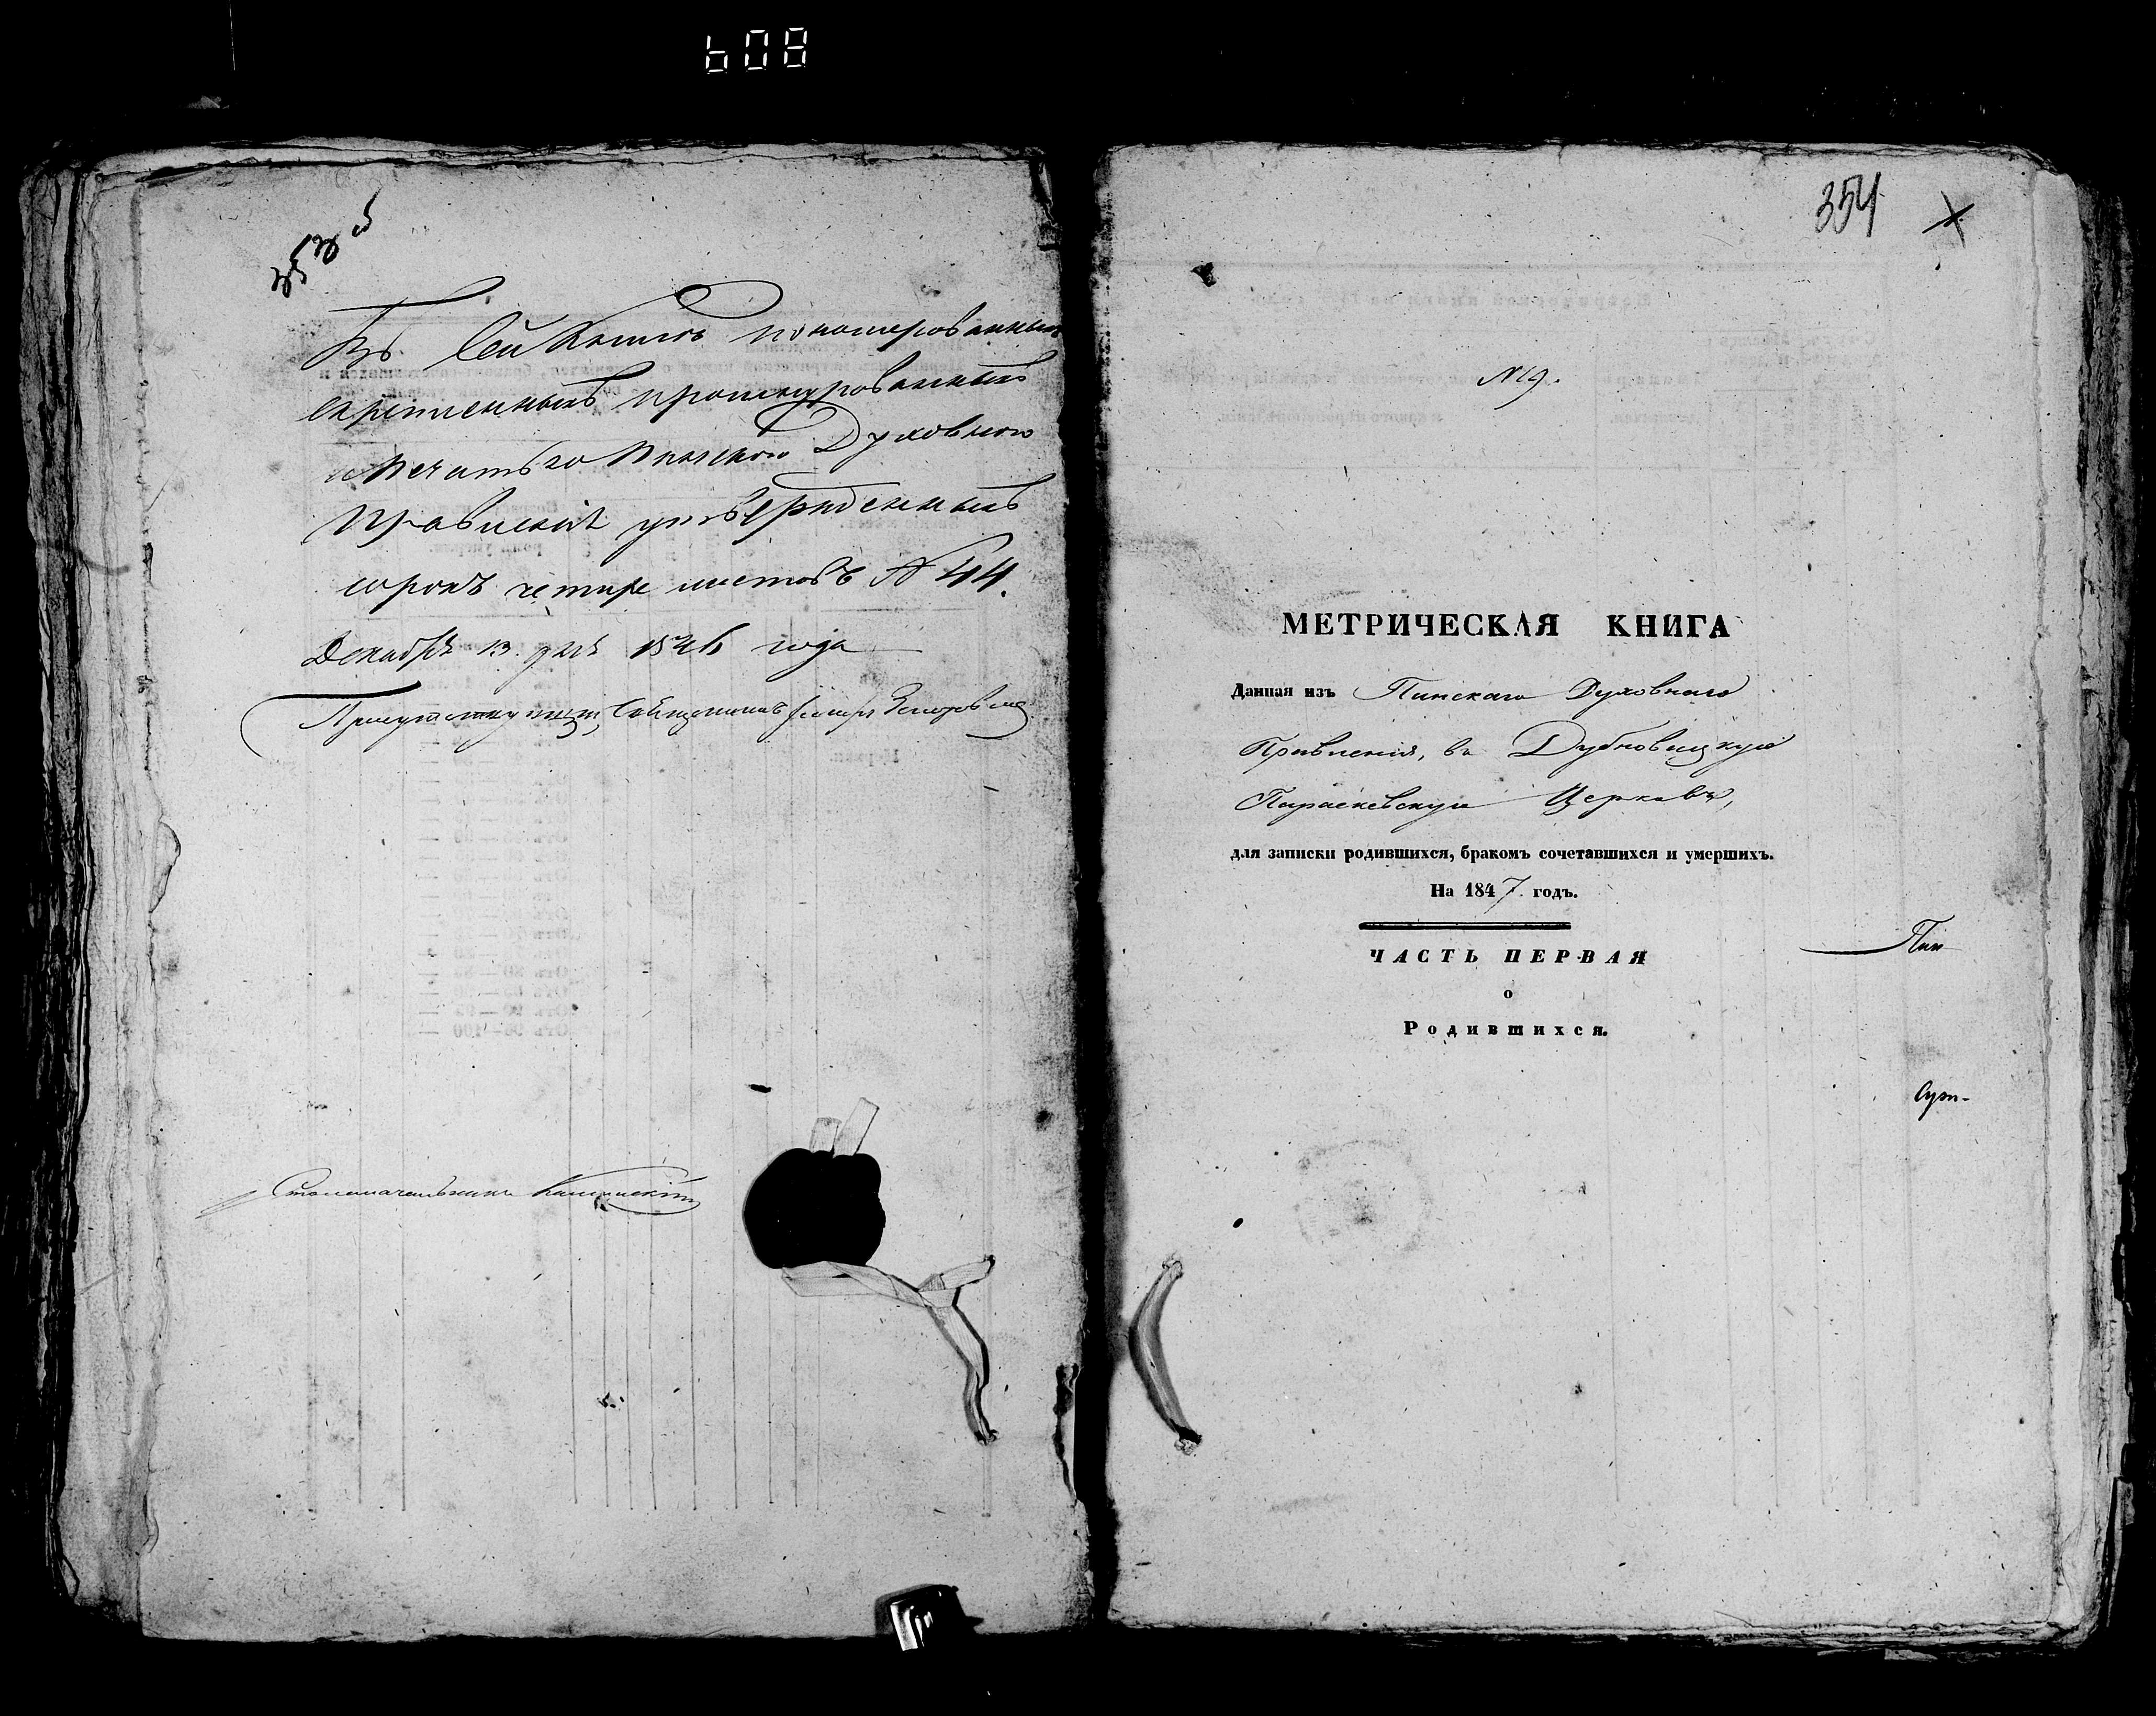 608
353 об
Въ сей книгѣ пономерованныхъ
скрѣпленныхъ прошнурованныхъ
и печатью Пинского Духовного
Правленія утвержденныхъ
сорокъ четыре листовъ № 44.
Декабря 13 дня 1846 года
Присутствующій, Священникъ
Столоначальникъ
354
N 19.
МЕТРИЧЕСКАЯ КНИГА
Данная изъ Пинскаго Духовнаго
Правленія, въ Дубновицкую
Параскевскую Церковь,
для записки родившихся, бракомъ сочетавшихся и умершихъ.
На 1847 годъ.
ЧАСТЬ ПЕРВАЯ
о
Родившихся.
Пин